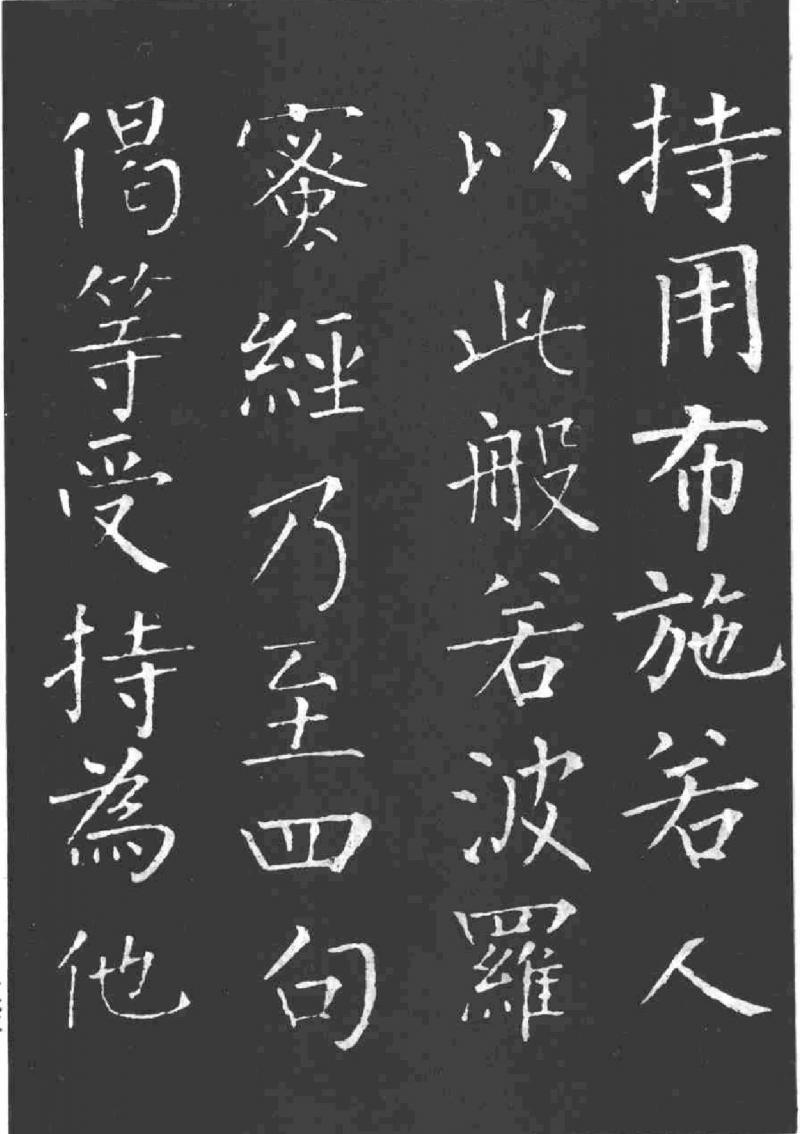 持用布施若人
以此般若波羅
蜜經乃至四句
偈等受持為他